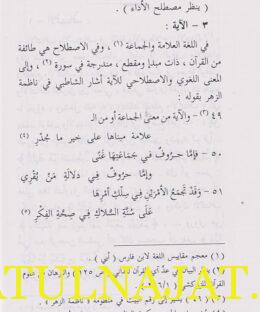 ( ينظر مصطلح الأداء ) .
٣ - الآية :
في اللغة العلامة والجماعة (١) ، وفي الاصطلاح هي طائفة
من القرآن ، ذات مبدإ ومقطع ، مندرجة في سورة (٢) ، وإلى
المعنى اللغوي والاصطلاحي للآية أشار الشاطبي في ناظمة
الزهر بقوله :
٤٩ (٣) - والآية من معنى الجماعة أو من الـ
علامة مبناها على خير ما جُدْرِ (٤)
٥٠ - فإمَّا حروفٌ في جَمَاعَتِهَا غَنًى
وإما حروفٌ في دلالةِ مَنْ يُقْرِي
٥١ - وَقَدْ تُجمعُ الأمْرَيْنِ في سِلْكِ أمْرِهَا
عَلَى سُنَّةِ السُّلاكِ في صِحَّةِ الفِكْرِ (٥)
(١) معجم مقاييس اللغة لابن فارس ( أبي ) .
(٢) البيان في عدّ آي القرآن للداني ص ١٢٥ والبرهان في علوم
القرآن للزركشي
(٣) يشير إلى رقم البيت في منظومة « ناظمة الزهر » .
ATULNA AT.